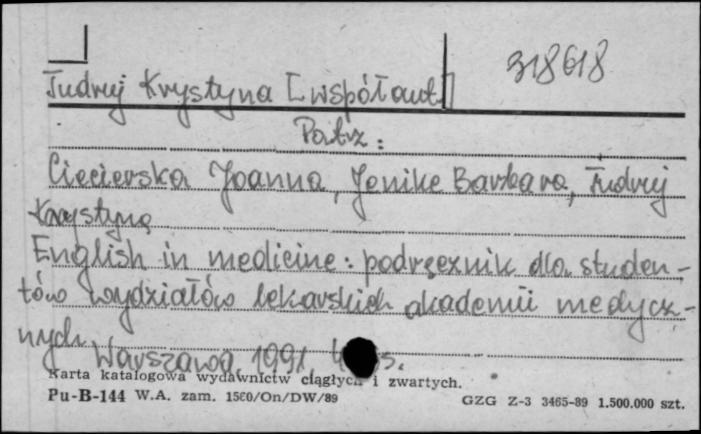 Tudruj Krystyna [współaut.]
318618
Patrz:
Ciecierska Joanna, Jenike Barbara, Tudruj
Krystyna
English in medicine : podręcznik dla studen-
tów wydziałów lekarskich akademii medycz-
nych
Warszawa, 1991
Karta katalogowa wydawnictw ciągłych i zwartych.
Pu-B-144 W.A. zam. 1560/On/DW/89
GZG Z-3 3465-89 1.500.000 szt.